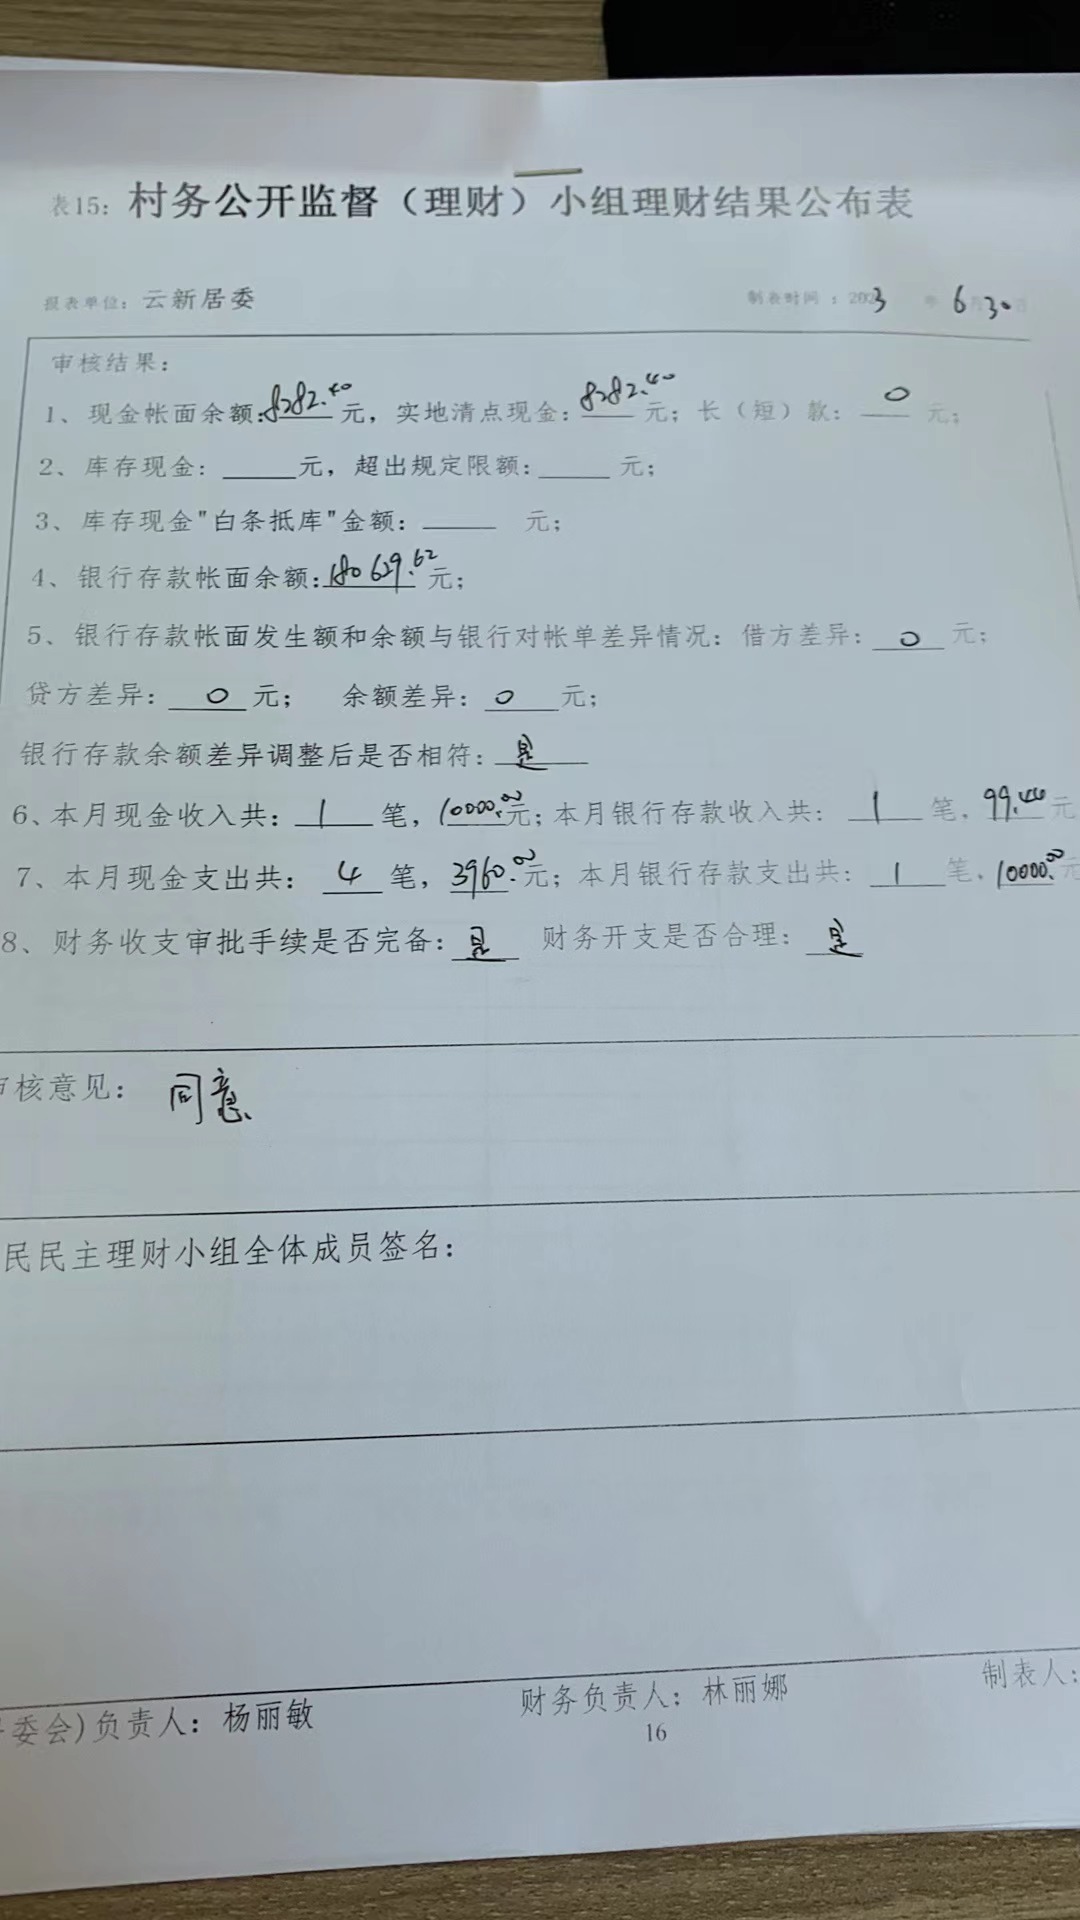 表15：村务公开监督（理财）小组理财结果公布表
报表单位：云新居委 制表时间：2023年6月30日
审核结果：
1、现金帐面余额：8282.40元，实地清点现金：8282.40元；长（短）款：0元；
2、库存现金：____元，超出规定限额：____元；
3、库存现金"白条抵库"金额：____元；
4、银行存款帐面余额：180629.62元；
5、银行存款帐面发生额和余额与银行对帐单差异情况：借方差异：0元；
贷方差异：0元； 余额差异：0元；
银行存款余额差异调整后是否相符：是
6、本月现金收入共：1笔，10000.00元；本月银行存款收入共：1笔，99.44元
7、本月现金支出共：4笔，3960.00元；本月银行存款支出共：1笔，10000.00元
8、财务收支审批手续是否完备：是 财务开支是否合理：是
核意见：同意
民民主理财小组全体成员签名：
委会)负责人：杨丽敏 财务负责人：林丽娜 制表人：
16